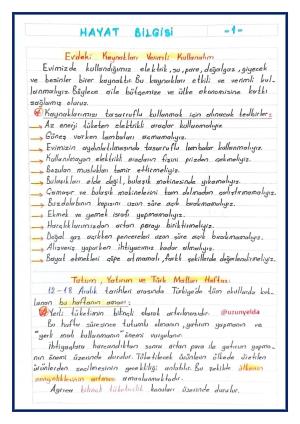 HAYAT BİLGİSİ -1-
Evdeki Kaynakları Verimli Kullanalım
Evimizde kullandığımız elektrik, su, para, doğalgaz, giyecek
ve besinler birer kaynaktır. Bu kaynakları etkili ve verimli kul-
lanmalıyız. Böylece aile bütçemize ve ülke ekonomisine katkı
sağlamış oluruz.
Kaynaklarımızı tasarruflu kullanmak için alınacak tedbirler:
Az enerji tüketen elektrikli araçlar kullanmalıyız.
Güneş varken lambaları açmamalıyız.
Evimizin aydınlatılmasında tasarruflu lambalar kullanmalıyız.
Kullanılmayan elektrikli araçların fişini prizden çekmeliyiz.
Bozulan muslukları tamir ettirmeliyiz.
Bulaşıkları elde değil, bulaşık makinesinde yıkamalıyız.
Çamaşır ve bulaşık makinelerini tam dolmadan çalıştırmamalıyız.
Buzdolabının kapısını uzun süre açık bırakmamalıyız.
Ekmek ve yemek israfı yapmamalıyız.
Harçlıklarımızdan artan parayı biriktirmeliyiz.
Doğal gaz açıkken pencereleri uzun süre açık bırakmamalıyız.
Alışveriş yaparken ihtiyacımız kadar almalıyız.
Bayat ekmekleri çöpe atmamalı, farklı şekillerde değerlendirmeliyiz.
Tutum, Yatırım ve Türk Malları Haftası
12-18 Aralık tarihleri arasında Türkiye'de tüm okullarda kut-
lanan bu haftanın amacı;
Yerli tüketimin bilinçli olarak artırılmasıdır. @uzunyelda
Bu hafta süresince tutumlu olmanın, yatırım yapmanın ve
"yerli malı kullanmanın" önemi vurgulanır.
İhtiyaçlara harcandıktan sonra artan para ile yatırım yapma-
nın önemi üzerinde durulur. Tüketilecek ürünlerin ülkede üretilen
ürünlerden seçilmesinin gerekliliği anlatılır. Bu şekilde ülkenin
zenginliklerinin artması amaçlanmaktadır.
Ayrıca bilinçli tüketicilik konuları üzerinde durulur.